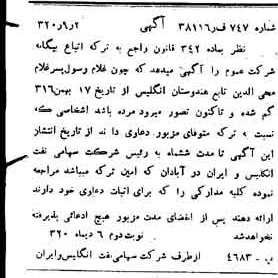 شماره ۷۴۷ ف ر ۳۸۱۱۶ آگهی ۲ ر ۶ ر ۳۲۰
نظر بماده ۳۴۲ قانون راجع به ترکه اتباع بیگانه
شرکت عموم را آگهی میدهد که چون غلام رسول پسر غلام
محی الدین تابع هندوستان انگلیس از تاریخ ۱۷ بهمن ۳۱۶
گم شده و تاکنون تصور میرود مرده باشد اشخاصی که
نسبت به ترکه متوفای مزبور دعاوی دارند از تاریخ انتشار
این آگهی تا مدت ششماه به رئیس شرکت سهامی نفت
انگلیس و ایران در آبادان که امین ترکه میباشد مراجعه
نموده کلیه مدارکی را که برای اثبات دعاوی خود دارند
ارائه دهند پس از انقضای مدت مزبور هیچ ادعائی پذیرفته
نخواهد شد نوبت دوم ۶ دیماه ۳۲۰
پ - ۴۶۸۳ از طرف شرکت سهامی نفت انگلیس و ایران